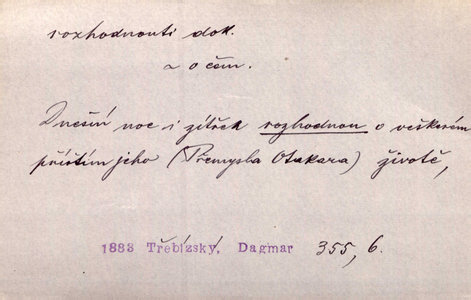 rozhodnouti dok.
a o čem.
Dnešní noc i zítřek rozhodnou o veškerém
příštím jeho (Přemysla Otakara) životě,
1883 Třebízský, Dagmar 355, 6.